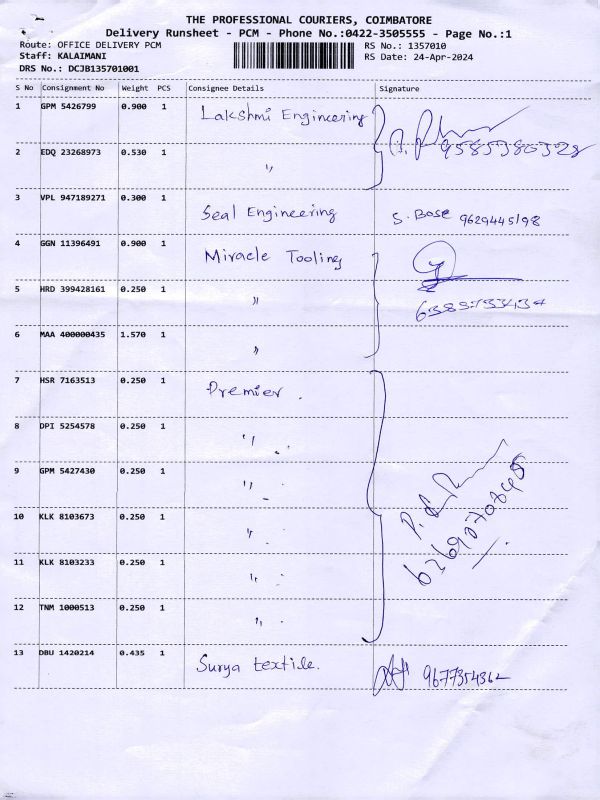 THE PROFESSIONAL COURIERS, COIMBATORE
Delivery Runsheet - PCM - Phone No.:0422-3505555 - Page No.:1
Route: OFFICE DELIVERY PCM RS No.: 1357010
Staff: KALAIMANI RS Date: 24-Apr-2024
DRS No.: DCJB135701001
S No Consignment No Weight PCS Consignee Details Signature
1 GPM 5426799 0.900 1 Lakshmi Engineering
2 EDQ 23268973 0.530 1 〃 9585980328
3 VPL 947189271 0.300 1 Seal Engineering S. Bose 9629445198
4 GGN 11396491 0.900 1 Miracle Tooling
5 HRD 399428161 0.250 1 〃
6 MAA 400000435 1.570 1 〃
7 HSR 7163513 0.250 1 Premier.
8 DPI 5254578 0.250 1 〃
9 GPM 5427430 0.250 1 〃
10 KLK 8103673 0.250 1 〃
11 KLK 8103233 0.250 1 〃
12 TNM 1000513 0.250 1 〃
13 DBU 1420214 0.435 1 Surya textile. 9677354362